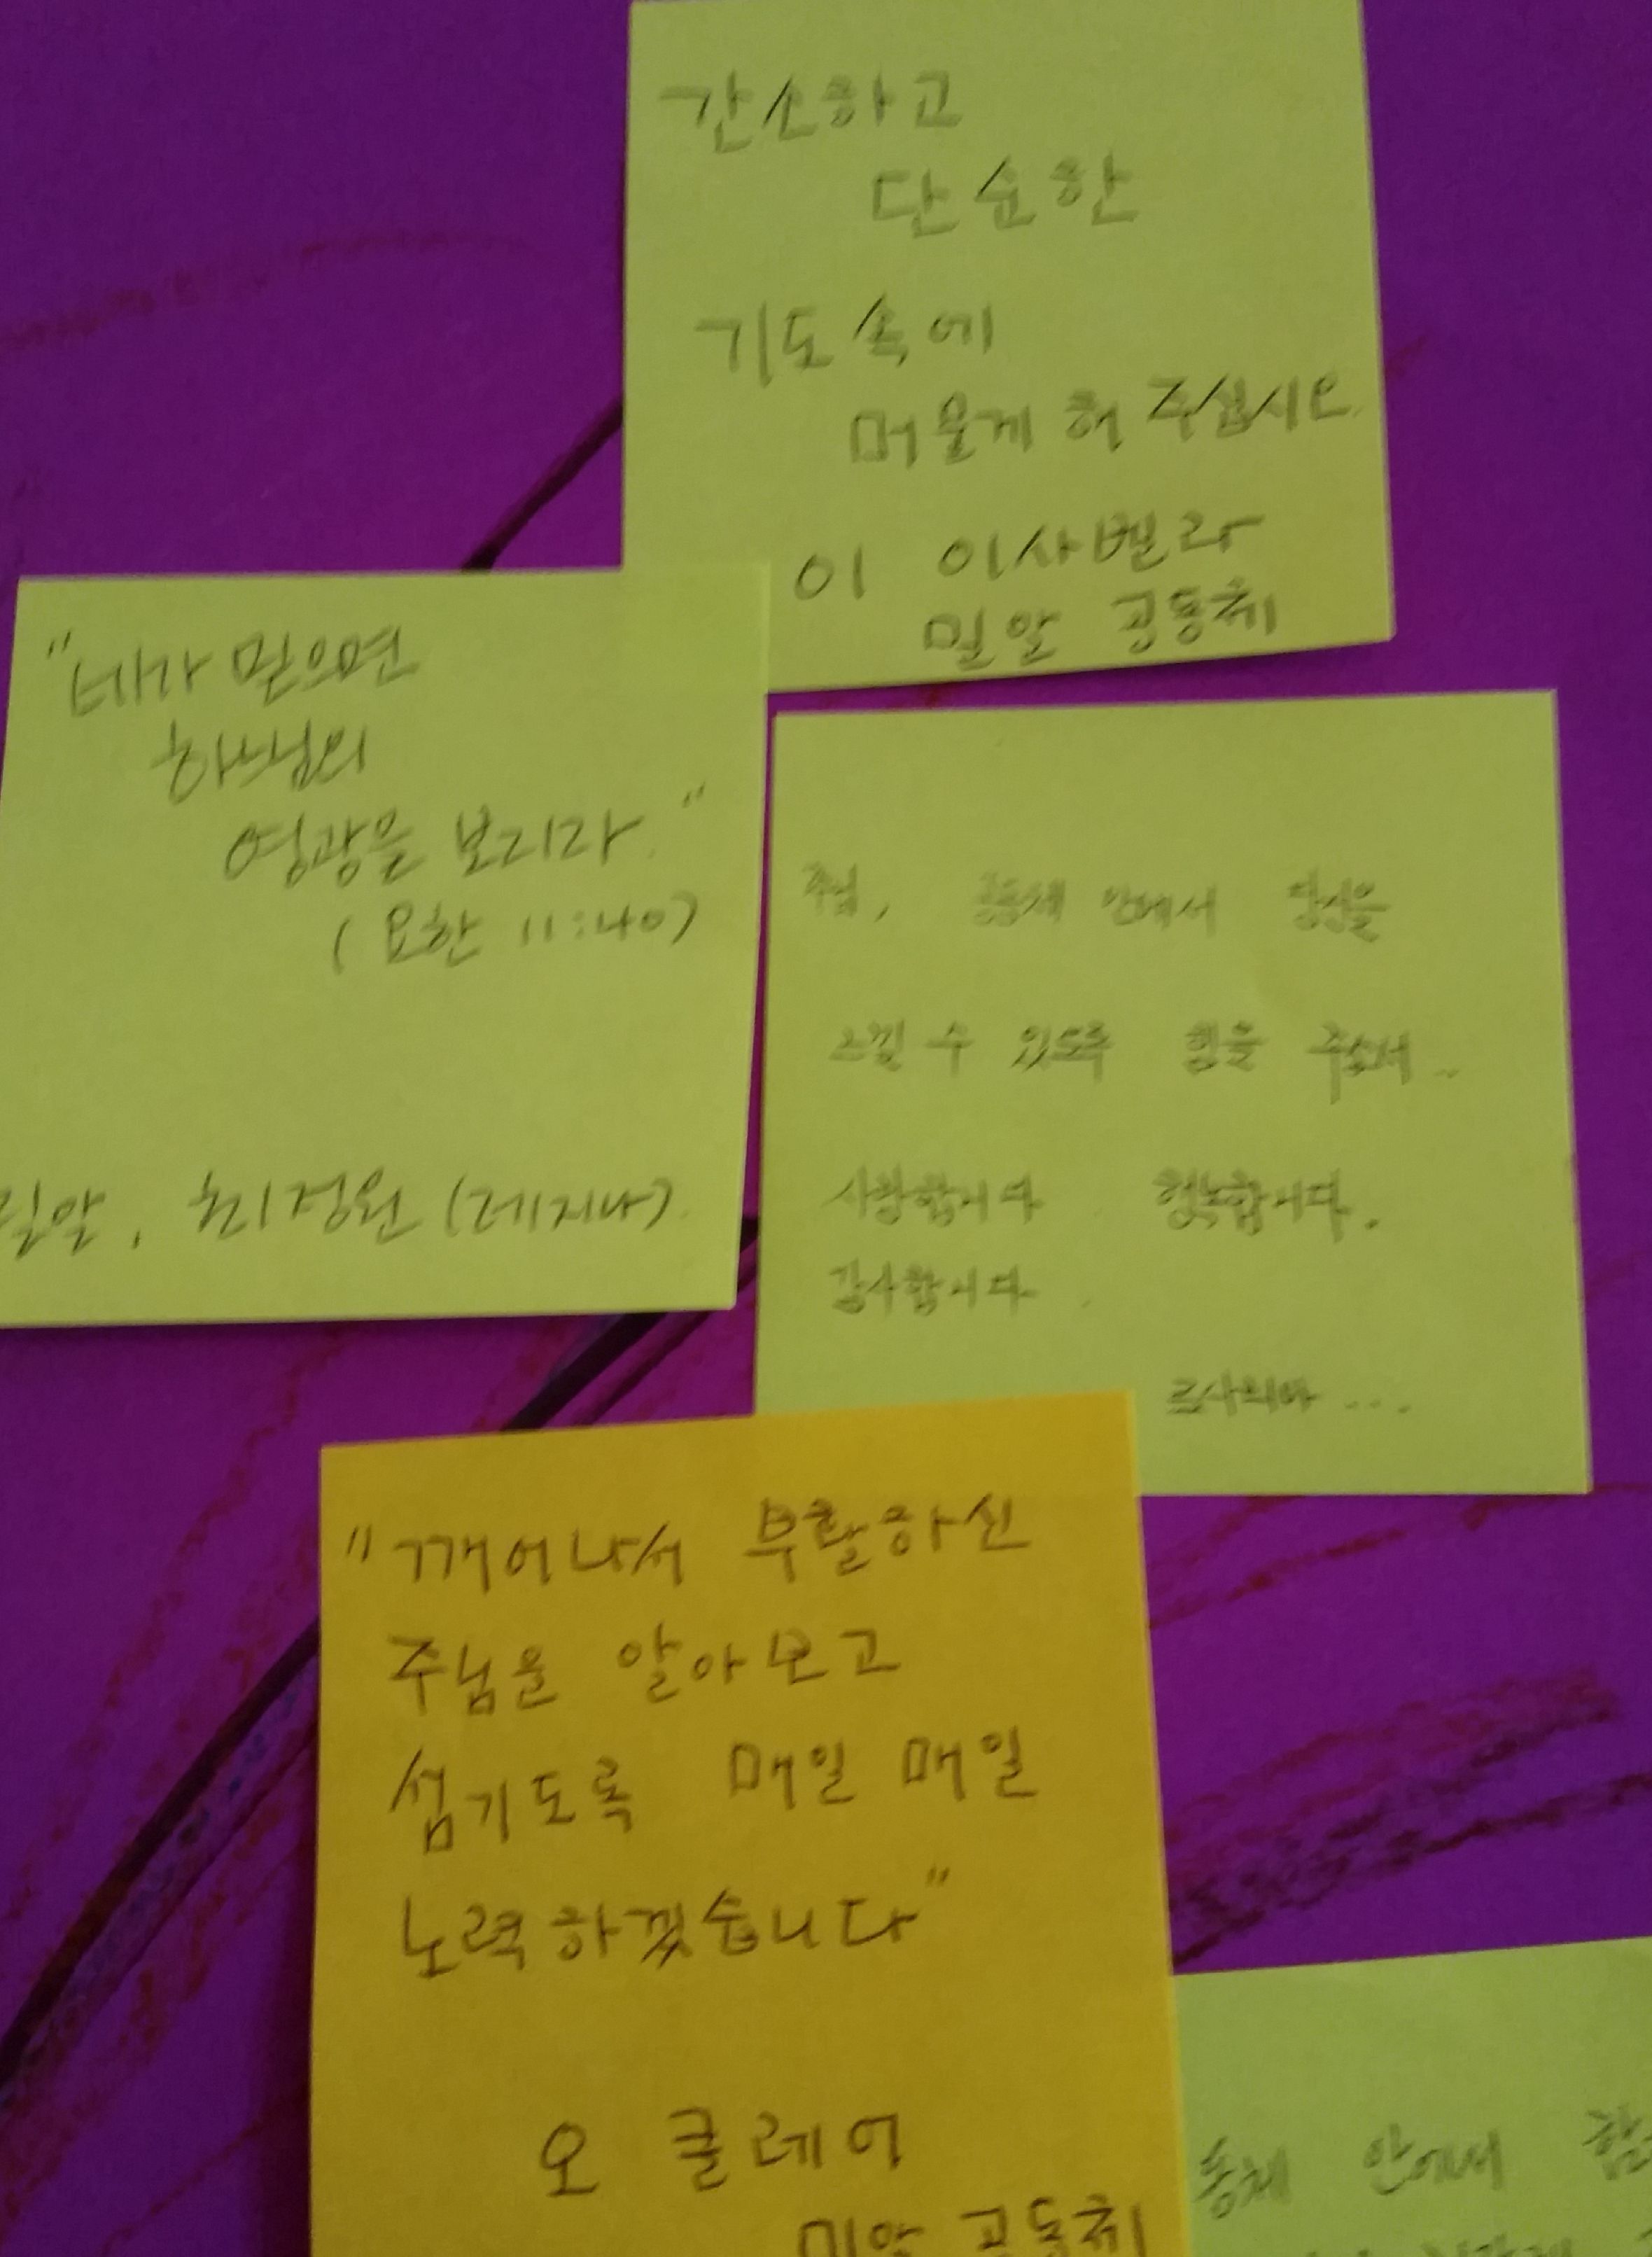 간소하고
단순한
기도속에
머물게 해 주십시오.
이 이사벨라
밀알 공동체
"네가 믿으면
하느님의
영광을 보리라."
(요한 11:40)
밀알, 최정원 (레지나).
주님, 공동체 안에서 당신을
느낄 수 있도록 힘을 주소서..
사랑합니다. 행복합니다.
감사합니다.
"깨어나서 부활하신
주님을 알아보고
섬기도록 매일 매일
노력하겠습니다"
오 클레어
밀알 공동체
동체 안에서